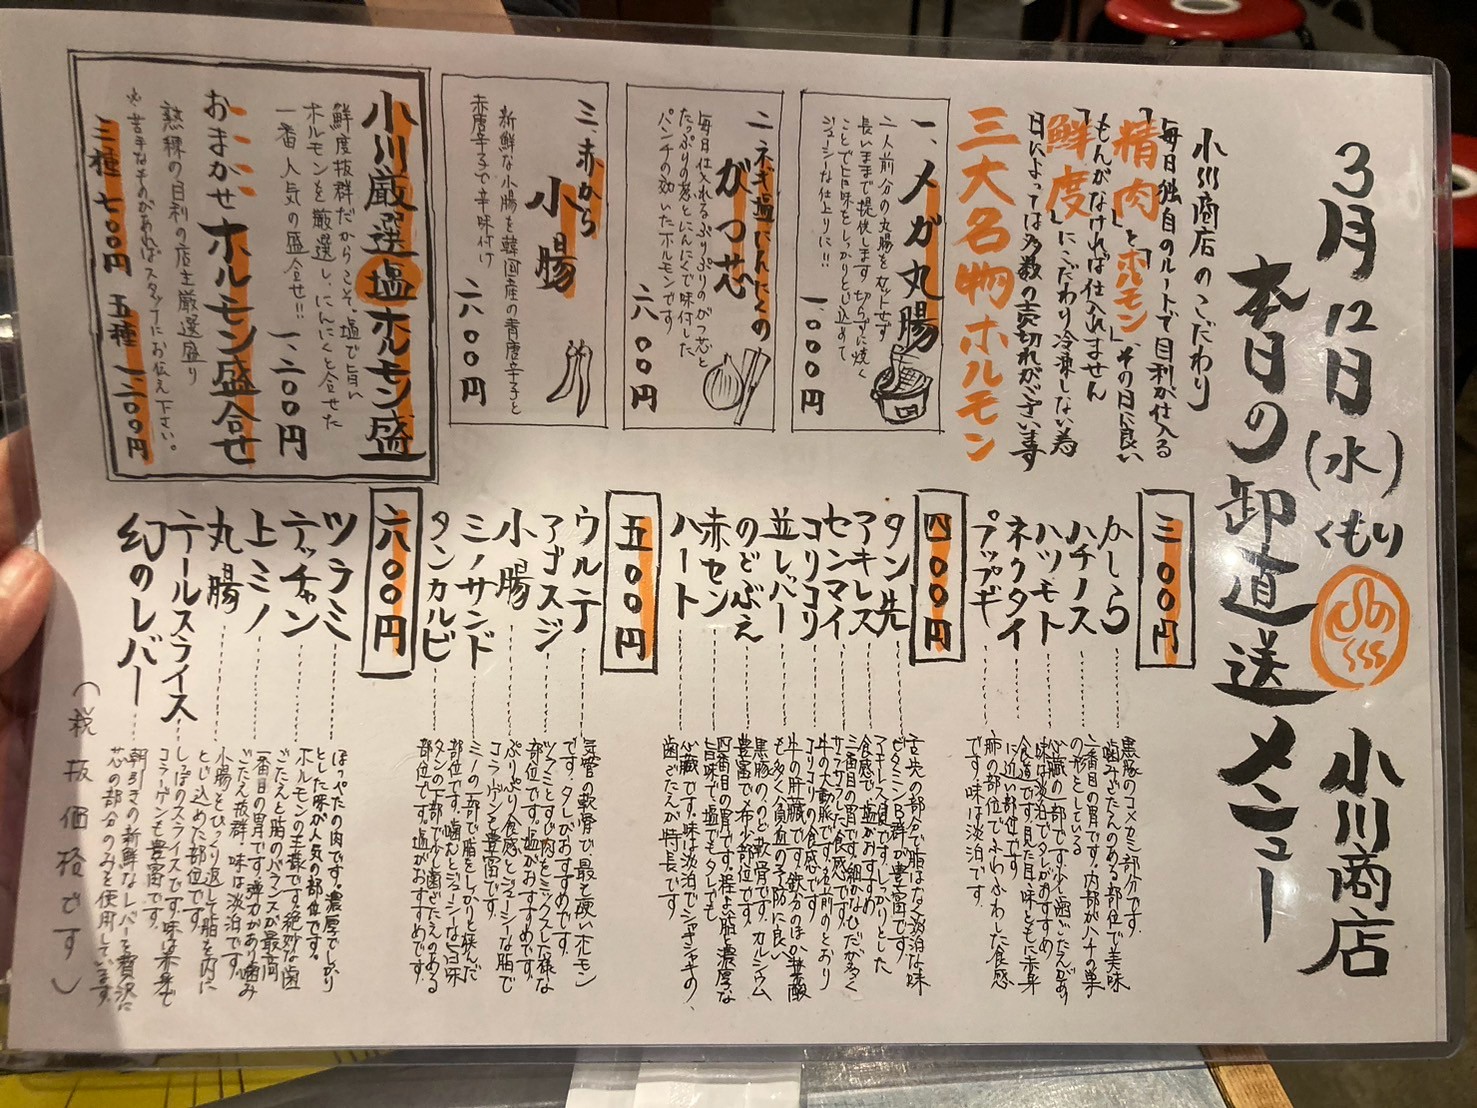 3月12日(水)くもり 小川商店
本日の卸直送メニュー
小川商店のこだわり
毎日独自のルートで目利が仕入る
「精肉」と「ホルモン」その日に良い
もんがなければ仕入れません
「鮮度」にこだわり冷凍しない為
日によっては多数の売切れがございます
三大名物ホルモン
一、メガ丸腸
二人前分の丸腸をカットせず
長いままで提供します 切らずに焼く
ことで旨味をしっかりとじ込めて
ジューシーな仕上りに!!
一、000円
二、ネギ塩にんにくの
がつ芯
毎日仕入れるぷりぷりのがつ芯と
たっぷりの葱とにんにくで味付した
パンチの効いたホルモンです
六00円
三、赤から
小腸
新鮮な小腸を韓国産の青唐辛子と
赤唐辛子で辛味付け
六00円
小川厳選塩ホルモン盛
鮮度抜群だからこそ、塩で旨い
ホルモンを厳選し、にんにくと合せた
一番人気の盛合せ!! 一、二00円
おまかせホルモン盛合せ
熟練の目利の店主厳選盛り
※苦手なものがあればスタッフにお伝え下さい。
三種 七00円 五種 一、二00円
三00円
かしら 黒豚のコメカミ部分です。
歯みごたえのある部位で美味
ハチノス 二番目の胃です。内部がハチの巣
の形をしている
ハツモト 心臓の一部です 少し歯ごたえがあり
味は淡泊でタレがおすすめ
ネクタイ 食道です。見た目、味ともに赤身
に近い部位です
プップギ 肺の部位でふわふわした食感
です。味は淡泊です。
四00円
タン先 舌先の部分で脂は少なく淡泊な味
ビタミンB群が豊富です。
アキレス アキレス腱です。しっかりとした
食感で塩がおすすめ
センマイ 三番目の胃です。細かなひだが多く
サクサクした食感です。
コリコリ 牛の大動脈です。名前のとおり
コリコリの食感です。
並レバー 牛の肝臓です。鉄分のほか葉酸
も多く貧血の予防に良い
のどぶえ 黒豚ののど軟骨です。カルシウム
豊富で希少部位です。
赤セン 四番目の胃です。程よい脂と濃厚な
旨味で塩でもタレでも
ハート 心臓です。味は淡泊でシャキシャキの、
歯ごたえが特長です。
五00円
ウルテ 気管の軟骨で最も硬いホルモン
です。タレがおすすめです。
アゴスジ ツラミとすじ肉をミックスした様な
部位です。塩がおすすめです。
小腸 ぷりぷり食感とジューシーな脂で
コラーゲンも豊富です。
ミノサンド ミノの一部で脂をしっかりと挟んだ
部位です。噛むとジューシーな旨味
タンカルビ タンの下部で少し歯ごたえのある
部位です。塩がおすすめです。
六00円
ツラミ ほっぺたの肉です。濃厚でしっかり
とした味が人気の部位です。
テッチャン ホルモンの王様です。絶妙な歯
ごたえと脂のバランスが最高
上ミノ 一番目の胃です。弾力があり噛み
ごたえ抜群。味は淡泊です。
丸腸 小腸をひっくり返して脂を内に
とじ込めた部位です。
テールスライス しっぽのスライスです。味は赤身で
コラーゲンも豊富です。
幻のレバー 朝引きの新鮮なレバーを贅沢に
芯の部分のみを使用しています。
(税抜価格です)